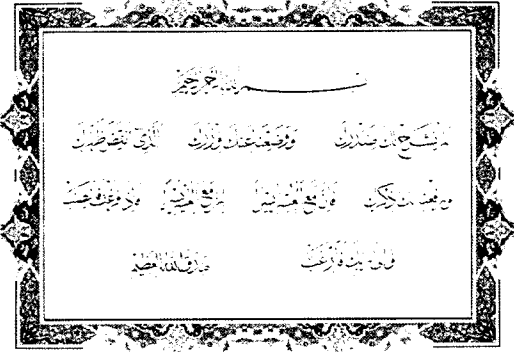 بسم الله الرحمن الرحيم
ألم نشرح لك صدرك ووضعنا عنك وزرك الذي أنقض ظهرك
ورفعنا لك ذكرك فإن مع العسر يسرا إن مع العسر يسرا فإذا فرغت فانصب
وإلى ربك فارغب صدق الله العظيم